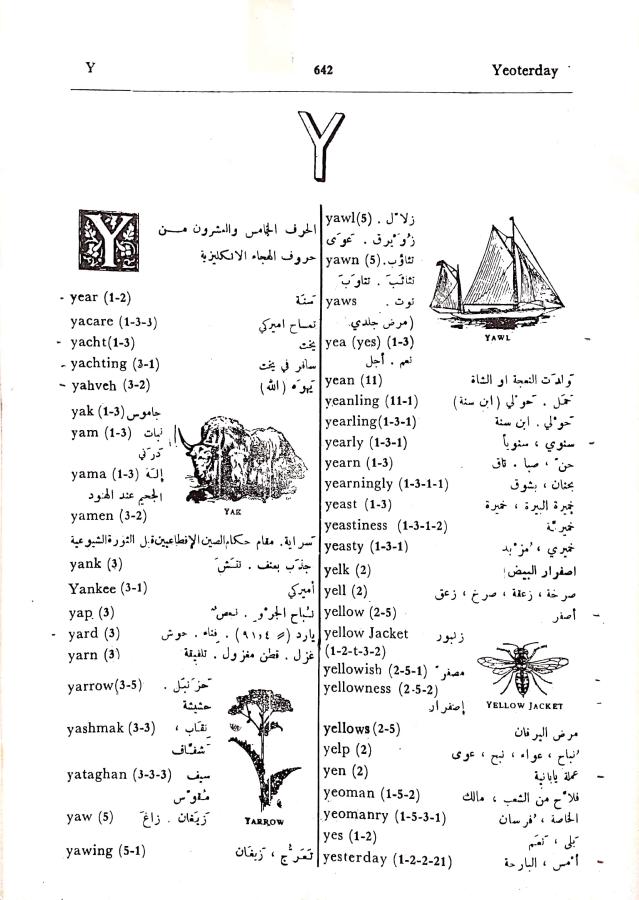 Y 642 Yeoterday
Y
Y
الحرف الخامس والعشرون مـن
حروف الهجاء الانكليزية
- year (1-2) سنة
yacare (1-3-3) تمساح اميركي
- yacht(1-3) يخت
- yachting (3-1) سافر في يخت
- yahveh (3-2) يهوه (الله)
yak (1-3) جاموس
yam (1-3) نبات
درني
yama (1-3) إلـه
الجحيم عند الهنود
YAK
yamen (3-2)
سراية. مقام حكام الصين الإقطاعيين قبل الثورة الشيوعية
yank (3) جذب بعنف .
Yankee (3-1) أميركي
yap (3) نباح الجرو .
- yard (3) يارد (= ٩١,٤) . فناء . حوش
yarn (3) غزل . قطن مغزول . تلفيقة
yarrow(3-5) حزنبل .
حشيشة
yashmak (3-3) نقاب ،
شفاف
yataghan (3-3-3) سيف
مقوس
yaw (5) زيغان . زاغ
YARROW
yawing (5-1) تعرج ، زيغان
yawl(5) زلال .
زويرق . عوى
yawn (5) تثاؤب.
تثائب . تثاوب
yaws نوت .
(مرض جلدي
YAWL
yea (yes) (1-3)
نعم . أجل
yean (11) ولدت النعجة او الشاة
yeanling (11-1) حمل . حولي (ابن سنة)
yearling(1-3-1) حولي . ابن سنة
yearly (1-3-1) سنوي ، سنوياً -
yearn (1-3) حن ، صبا . تاق
yearningly (1-3-1-1) بحنان ، بشوق
yeast (1-3) خميرة البيرة ، خميرة
yeastiness (1-3-1-2) خميرية
yeasty (1-3-1) خميري ، مزبد
yelk (2) اصفرار البيض
yell (2) صرخة ، زعقة ، صرخ ، زعق
yellow (2-5) أصفر -
yellow Jacket زنبور
(1-2-t-3-2)
yellowish (2-5-1) مصفر
yellowness (2-5-2)
إصفرار
YELLOW JACKET
yellows (2-5) مرض اليرقان
yelp (2) نباح ، عواء ، نبح ، عوى
yen (2) عملة يابانية -
yeoman (1-5-2) فلاح من الشعب ، مالك
yeomanry (1-5-3-1) الخاصة ، فرسان
yes (1-2) بلى ، نعم
yesterday (1-2-2-21) أمس ، البارحة -